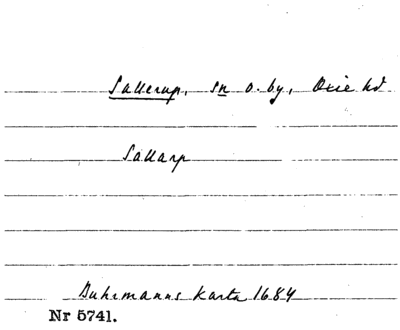 Sallerup, sn o. by, Oxie hd
Sallarp
Buhrmanns karta 1684
Nr 5741.